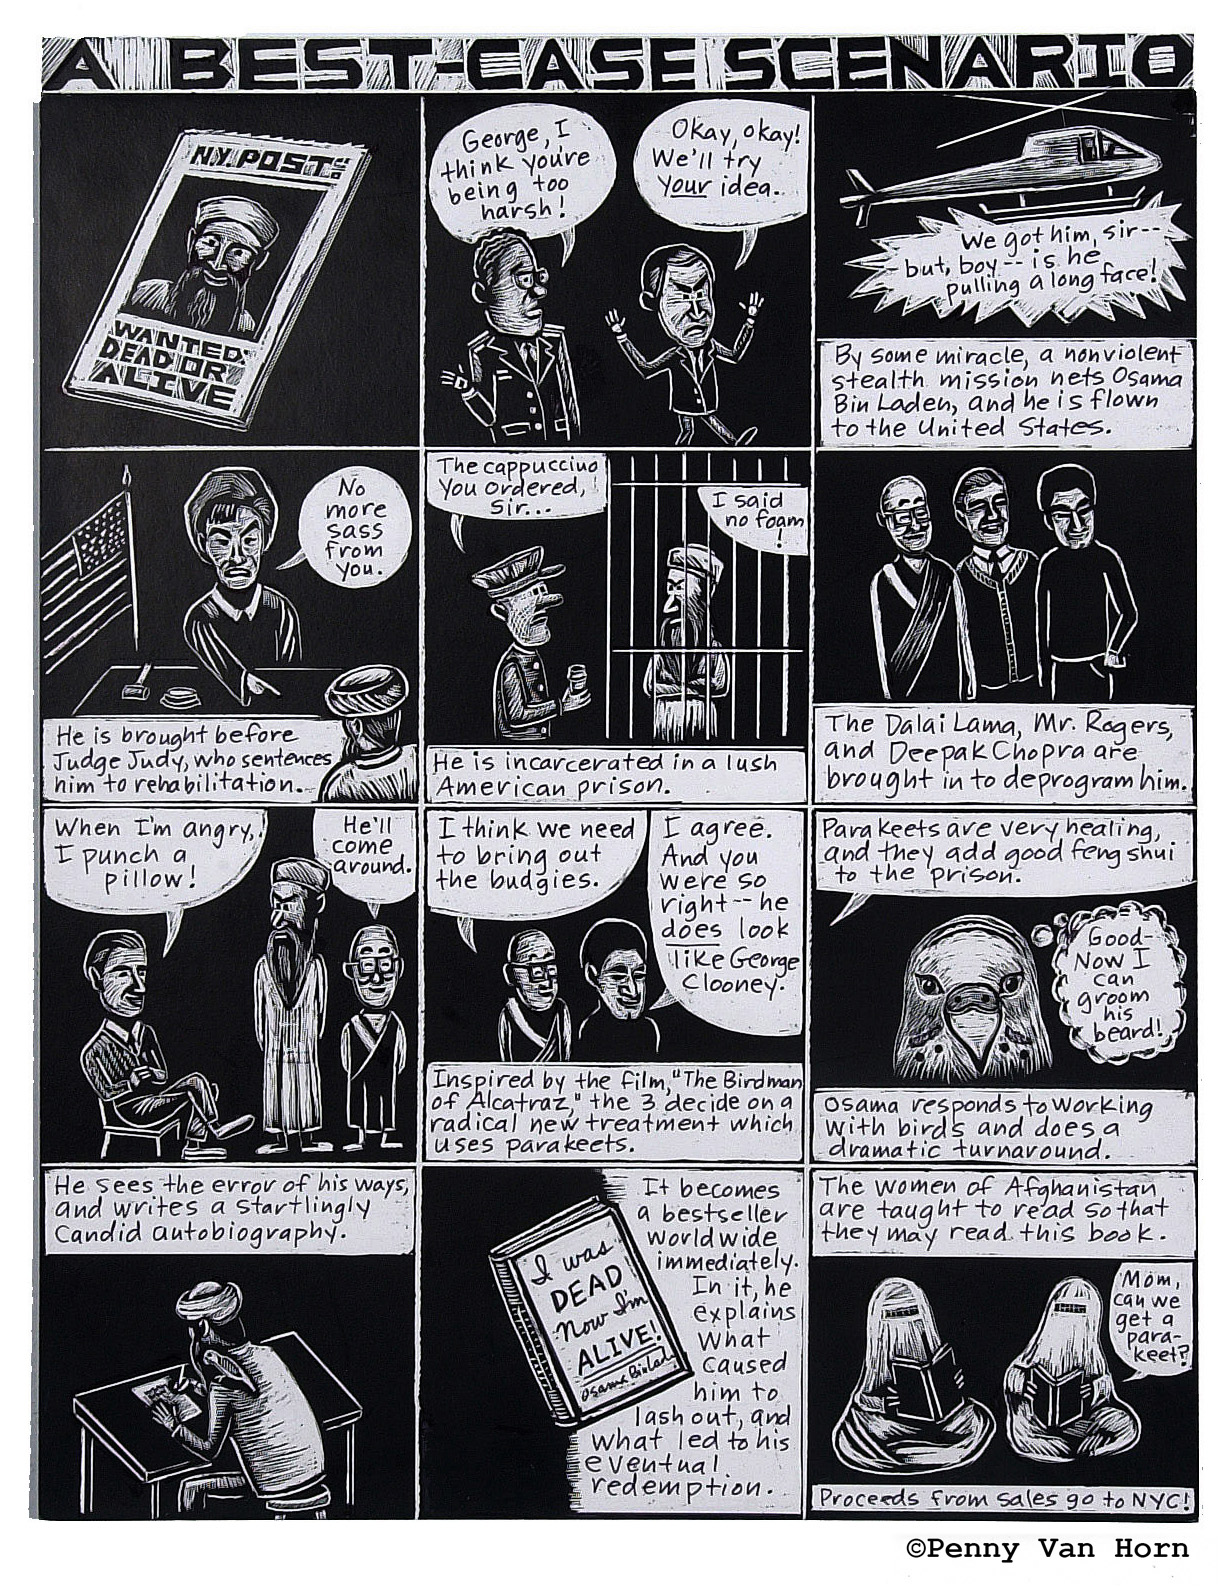 A BEST-CASE SCENARIO
N.Y. POST
WANTED
DEAD OR
ALIVE
George, I
think you're
being too
harsh!
Okay, okay!
We'll try
your idea.
We got him, sir--
but, boy-- is he
pulling a long face!
By some miracle, a nonviolent
stealth mission nets Osama
Bin Laden, and he is flown
to the United States.
No
more
sass
from
you.
He is brought before
Judge Judy, who sentences
him to rehabilitation.
The cappuccino
you ordered,
Sir...
I said
no foam
!
He is incarcerated in a lush
American prison.
The Dalai Lama, Mr. Rogers,
and Deepak Chopra are
brought in to deprogram him.
When I'm angry,
I punch a
pillow!
He'll
come
around.
I think we need
to bring out
the budgies.
I agree.
And you
were so
right-- he
does look
like George
Clooney.
Inspired by the film, "The Birdman
of Alcatraz," the 3 decide on a
radical new treatment which
uses parakeets.
Parakeets are very healing,
and they add good feng shui
to the prison.
Good-
Now I
can
groom
his
beard!
Osama responds to working
with birds and does a
dramatic turnaround.
He sees the error of his ways,
and writes a startlingly
candid autobiography.
I was
DEAD
Now I'm
ALIVE!
It becomes
a bestseller
worldwide
immediately.
In it, he
explains
what
caused
him to
lash out, and
what led to his
eventual
redemption.
The women of Afghanistan
are taught to read so that
they may read this book.
Mom,
can we
get a
para-
keet?
Proceeds from sales go to NYC!
©Penny Van Horn